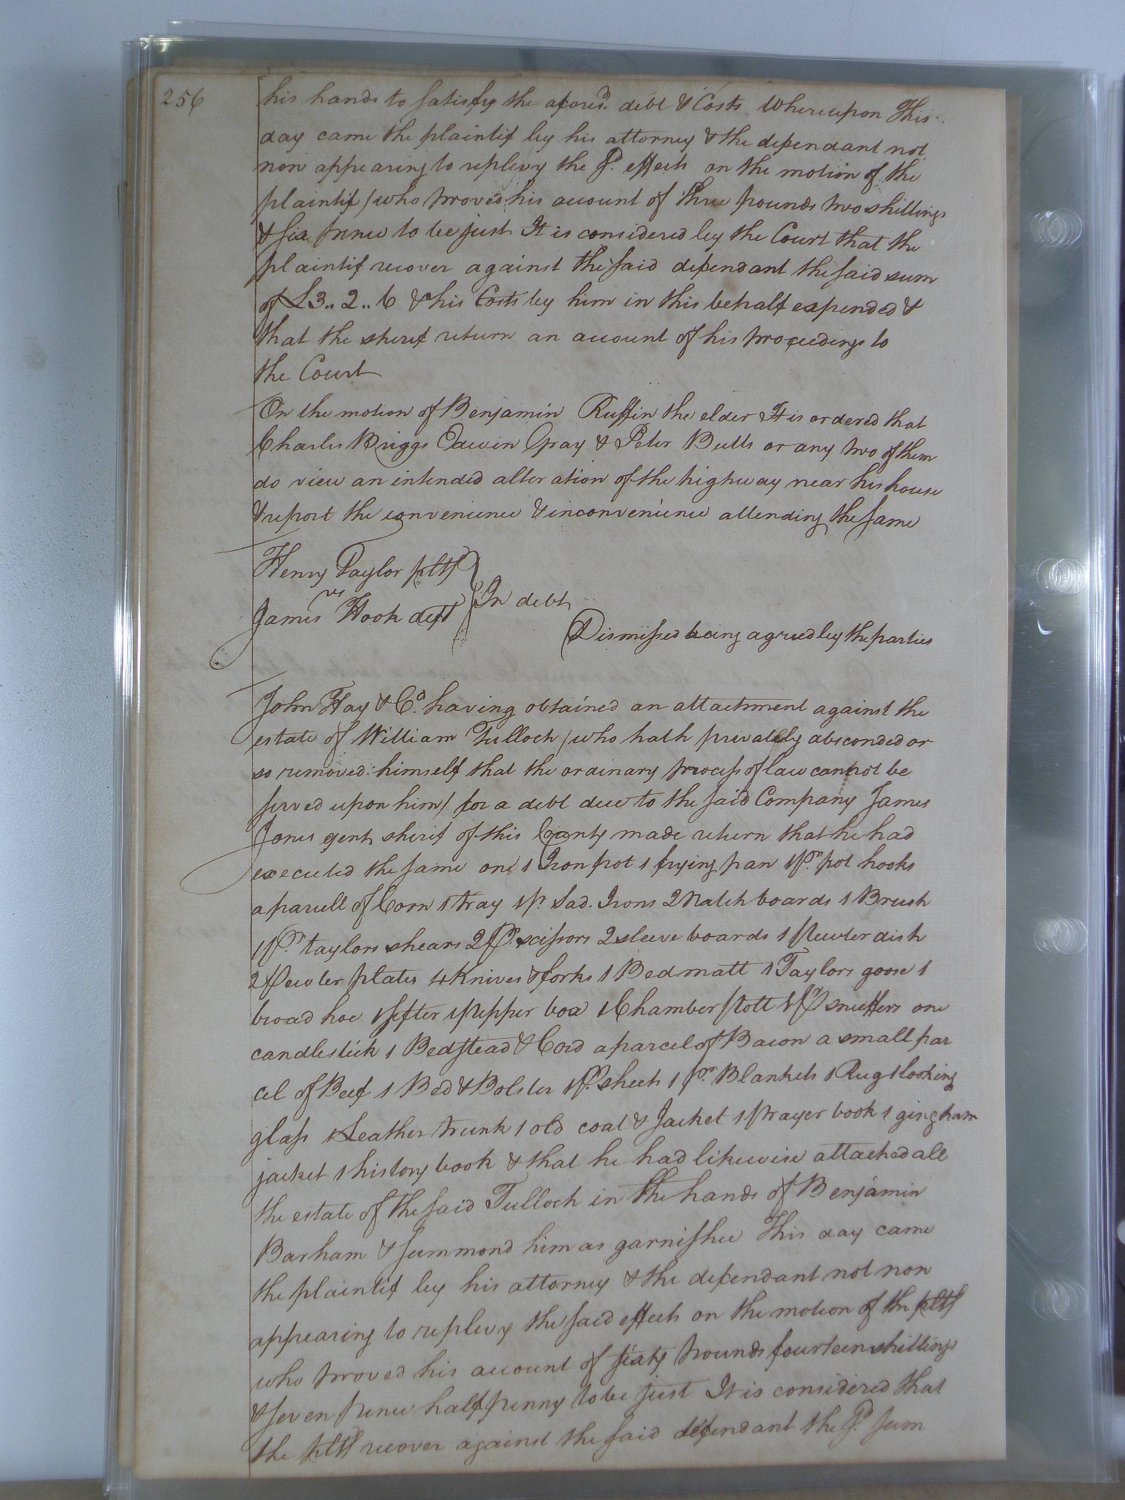 256
his hands to satisfy the afores.d debt & Costs Whereupon This
day came the plaintif by his attorney & the defendant not
non appearing to replevy the s.d effects on the motion of the
plaintif (who proved his account of three pounds two shillings
& six pence to be just It is considered by the Court that the
plaintif recover against the said defendant the said sum
of £3..2..6 & his Costs by him in this behalf expended &
that the sherif return an account of his proceedings to
the Court
On the motion of Benjamin Ruffin the elder It is ordered that
Charles Briggs Edwin Gray & Peter Butts or any two of them
do view an intended alteration of the highway near his house
& report the convenience & inconvenience attending the same
Henry Taylor pltf
vs
James Hook deft
In debt
Dismissed being agreed by the parties
John Hay & Co. having obtained an attachment against the
estate of William Tulloch (who hath privately absconded or
so removed himself that the ordinary process of law cannot be
served upon him) for a debt due to the said Company James
Jones gent sherif of this County made return that he had
executed the same on 1 Iron pot 1 frying pan 1 pr pot hooks
a parcell of Corn 1 tray 1 pr Sad. Irons 2 boards 1 Brush
1 pr taylors shears 2 pr scissors 2 sleeve boards 1 pewter dish
2 Pewter plates 4 Knives & forks 1 Bed matt 1 Taylors goose 1
broad hoe 1 sifter 1 pepper box 1 Chamber pott 1 pr snuffers one
candlestick 1 Bedstead & Cord a parcel of Bacon a small par
cel of Beef 1 Bed & Bolster 1 pr sheets 1 pr Blankets 1 Rug 1 looking
glass 1 Leather trunk 1 old coat & Jacket 1 prayer book 1 gingham
jacket 1 history book & that he had likewise attached all
the estate of the said Tulloch in the hands of Benjamin
Barham & summond him as garnishee This day came
the plaintif by his attorney & the defendant not non
appearing to replevy the said effects on the motion of the pltf
who proved his account of sixty pounds fourteen shillings
& seven pence half penny to be just It is considered that
the pltf recover against the said defendant the s.d sum